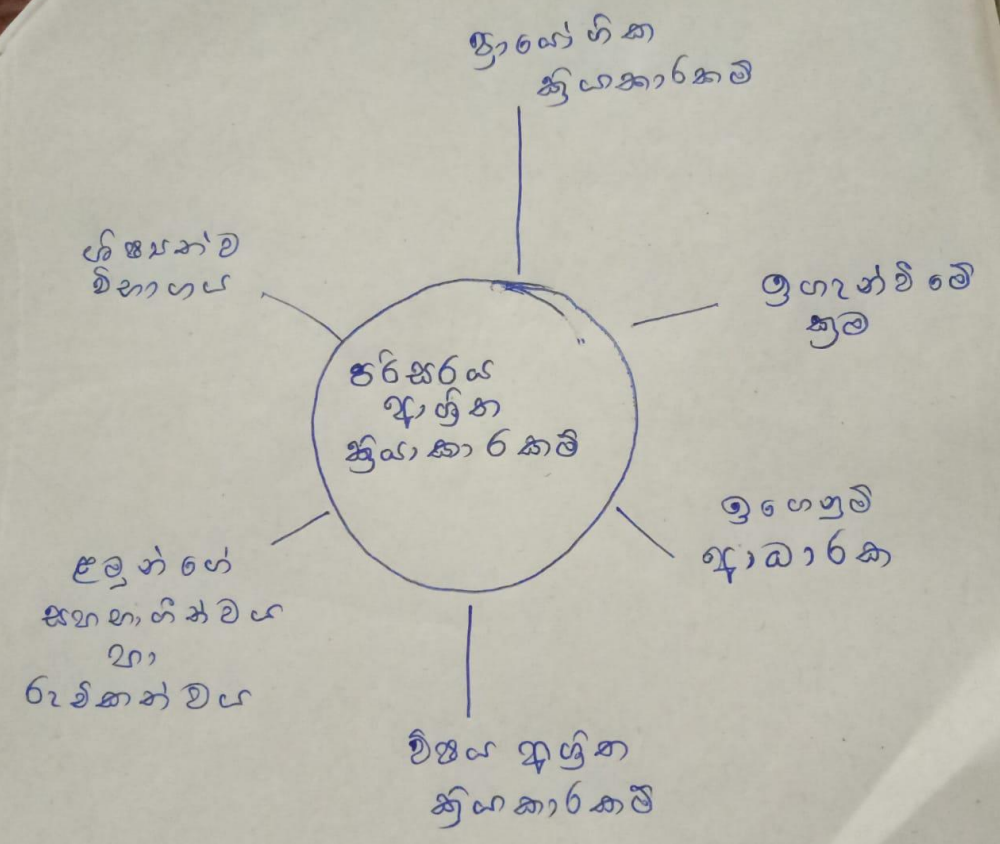 ප්‍රායෝගික
ක්‍රියාකාරකම්
ශිෂ්‍යත්ව
විභාගය
ඉගැන්වීමේ
ක්‍රම
පරිසරය
ආශ්‍රිත
ක්‍රියාකාරකම්
ඉගෙනුම්
ආධාරක
ළමුන්ගේ
සහභාගීත්වය
හා
රුචිකත්වය
විෂය ආශ්‍රිත
ක්‍රියාකාරකම්